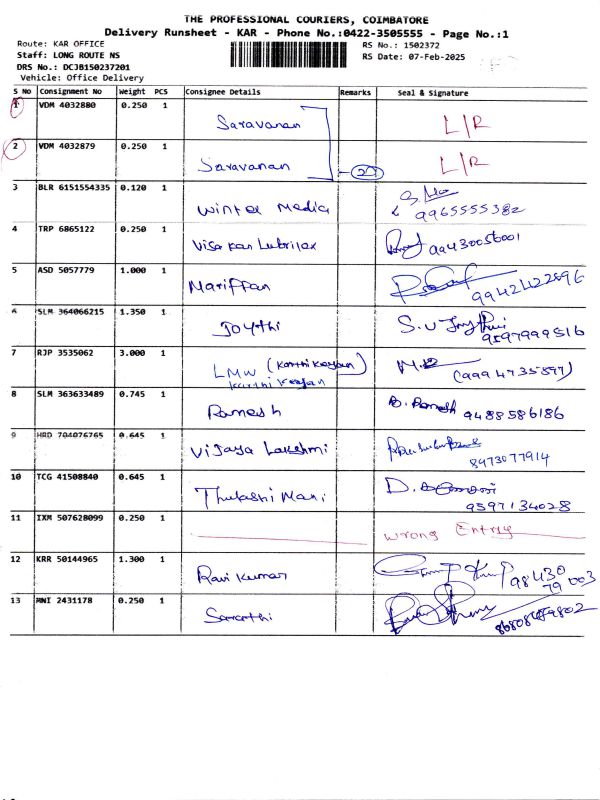 THE PROFESSIONAL COURIERS, COIMBATORE
Delivery Runsheet - KAR - Phone No.:0422-3505555 - Page No.:1
Route: KAR OFFICE RS No.: 1502372
Staff: LONG ROUTE NS RS Date: 07-Feb-2025
DRS No.: DCJB150237201
Vehicle: Office Delivery
S No Consignment No Weight PCS Consignee Details Remarks Seal & Signature
1 VDM 4032880 0.250 1 Saravanan L/R
2 VDM 4032879 0.250 1 Saravanan L/R
3 BLR 6151554335 0.120 1 Winter Media 9965555382
4 TRP 6865122 0.250 1 Visakan Lubrilex 94430056001
5 ASD 5057779 1.000 1 Mariffan 9942422896
6 SLM 364066215 1.350 1 Joythi 9597999516
7 RJP 3535062 3.000 1 LMW (Karthikeyan) (9994735897)
Karthikeyan
8 SLM 363633489 0.745 1 Ramesh B. Ramesh 9488586186
9 HRD 704076765 0.645 1 Vijaya Lakshmi 8973077914
10 TCG 41508840 0.645 1 Thulashi Mani 9597134028
11 IXM 507628099 0.250 1 Wrong Entry
12 KRR 50144965 1.300 1 Ravi Kumar 98430
79003
13 MNI 2431178 0.250 1 Sarathi